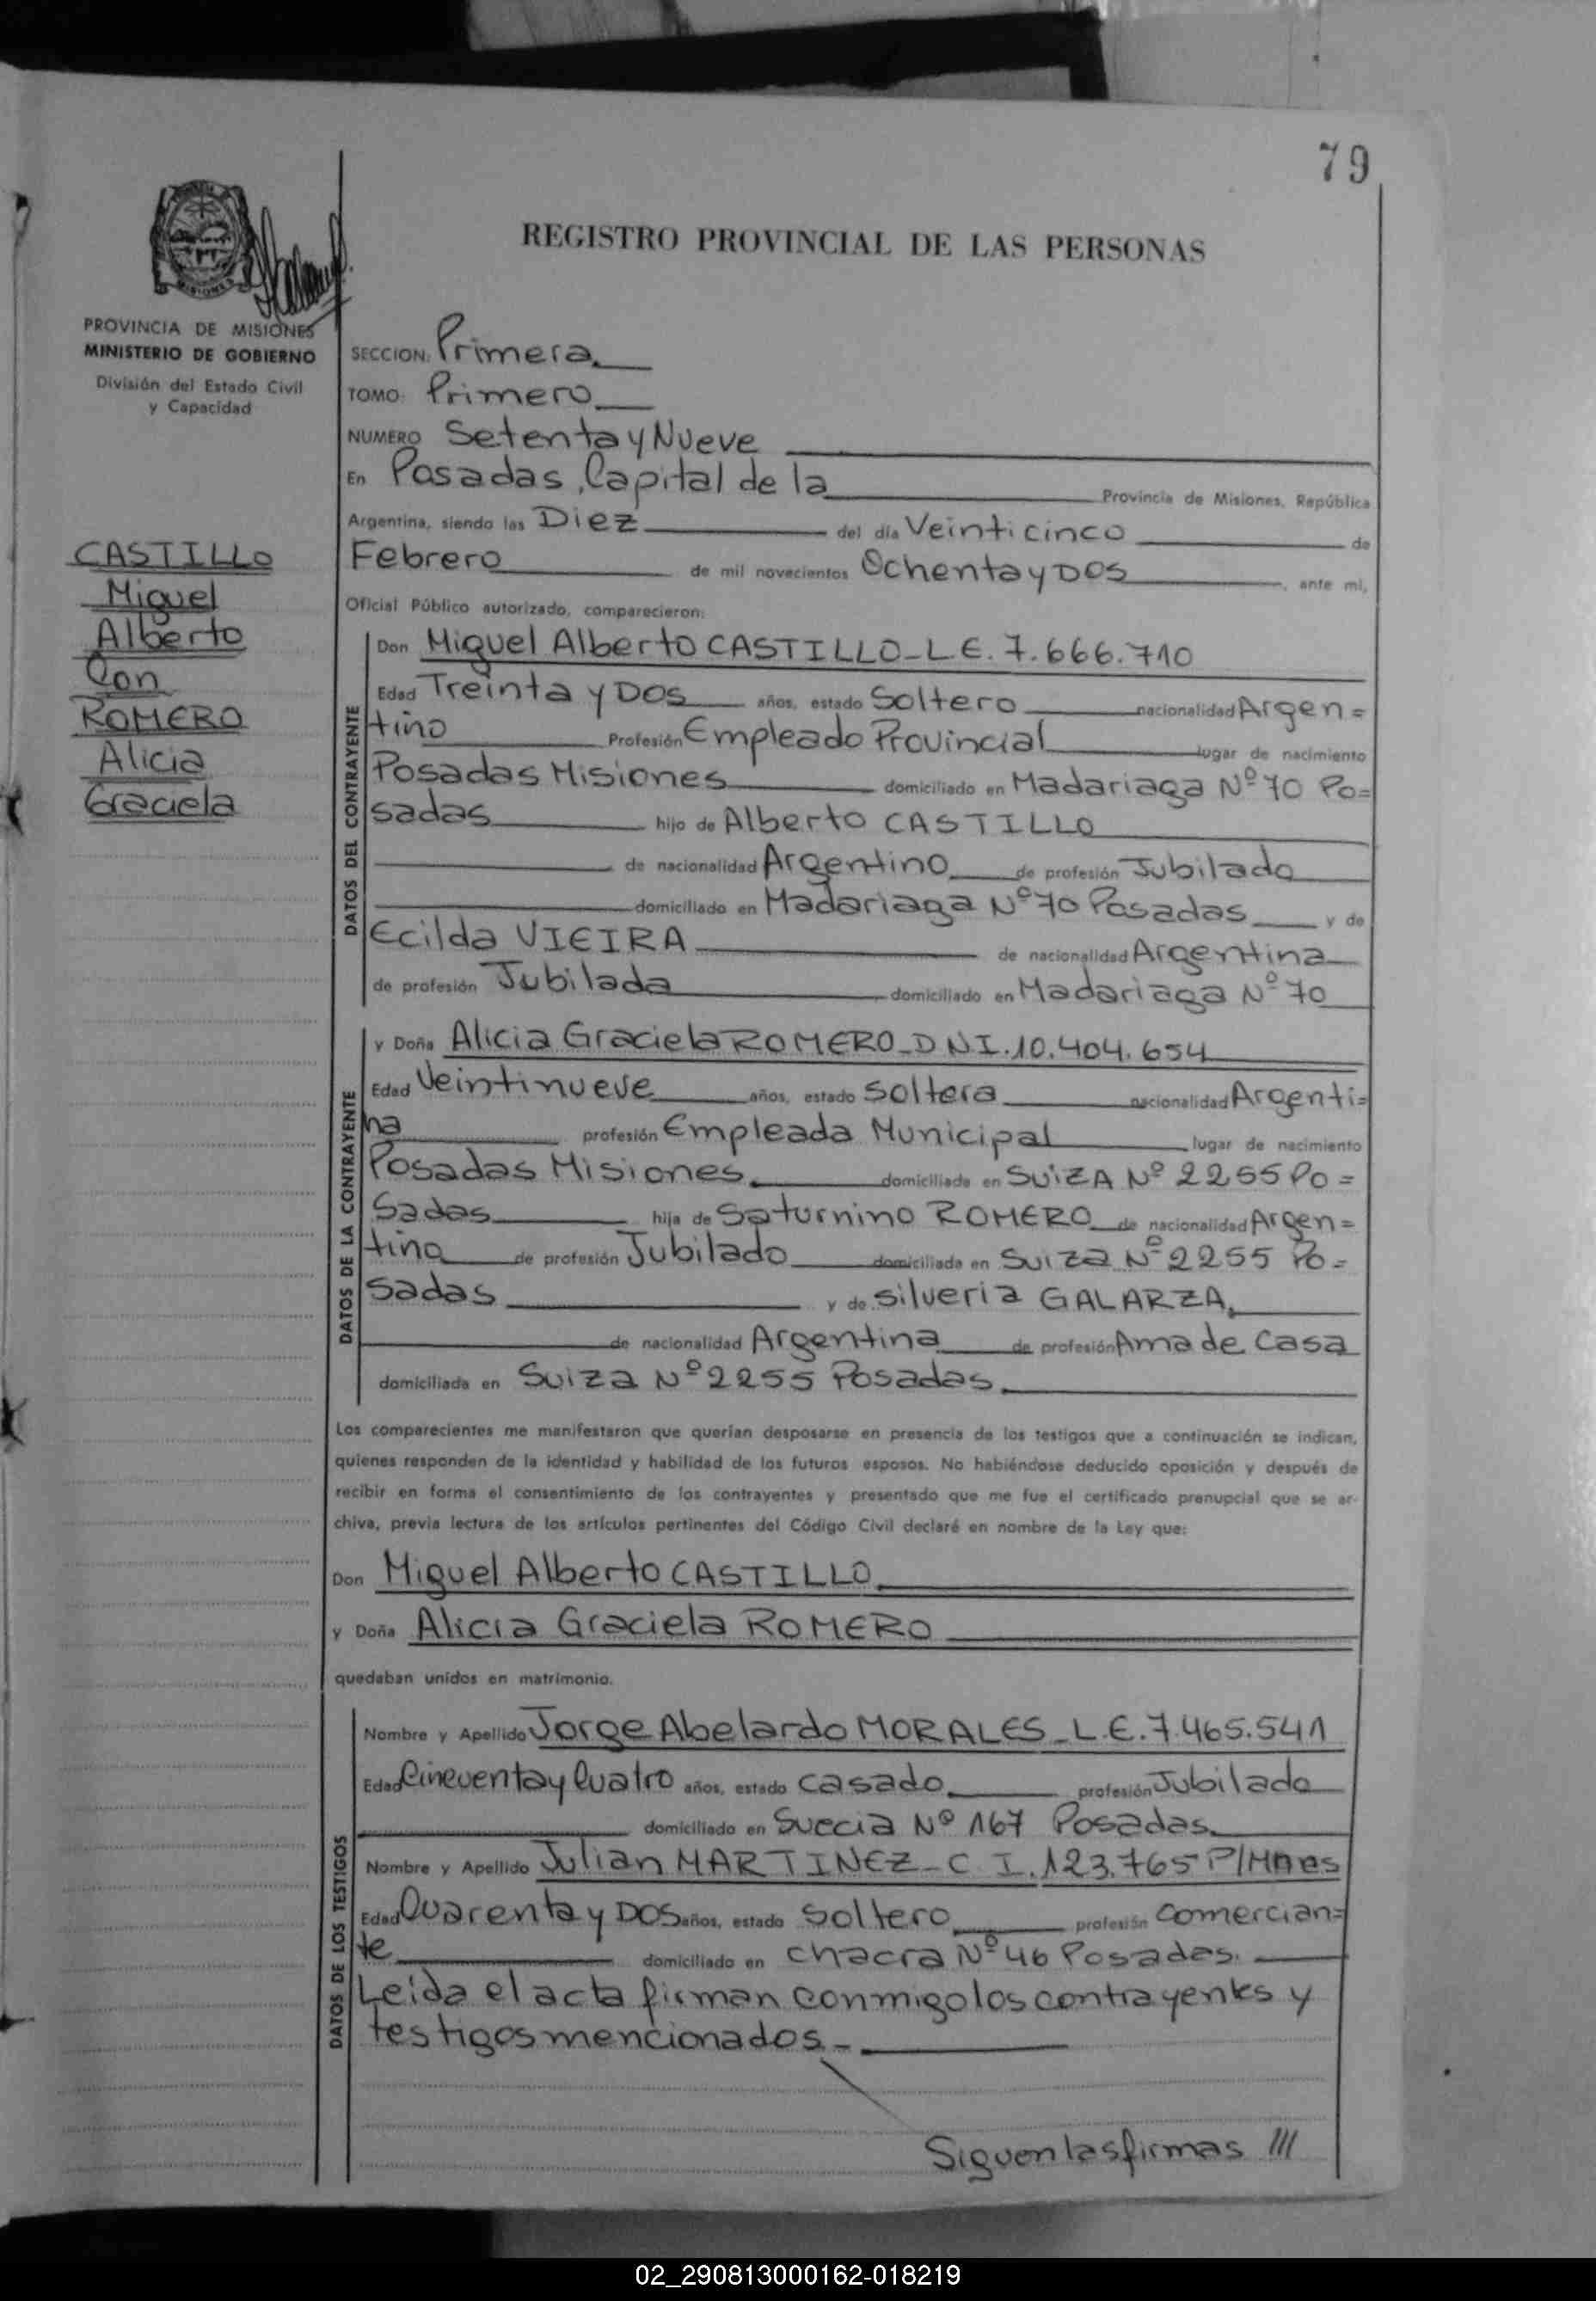 79
REGISTRO PROVINCIAL DE LAS PERSONAS
MISIONES
PROVINCIA DE MISIONES
MINISTERIO DE GOBIERNO
División del Estado Civil
y Capacidad
CASTILLO
Miguel
Alberto
Con
ROMERO
Alicia
Graciela
SECCION: Primera
TOMO: Primero
NUMERO Setenta y Nueve
En Posadas, Capital de la Provincia de Misiones, República
Argentina, siendo las Diez del día Veinticinco de
Febrero de mil novecientos Ochenta y Dos, ante mi,
Oficial Público autorizado, comparecieron:
DATOS DEL CONTRAYENTE
Don Miguel Alberto CASTILLO - L.E. 7.666.710
Edad Treinta y Dos años, estado Soltero nacionalidad Argen=
tino Profesión Empleado Provincial lugar de nacimiento
Posadas Misiones domiciliado en Madariaga Nº 70 Po=
sadas hijo de Alberto CASTILLO
de nacionalidad Argentino de profesión Jubilado
domiciliado en Madariaga Nº 70 Posadas y de
Ecilda VIEIRA de nacionalidad Argentina
de profesión Jubilada domiciliado en Madariaga Nº 70
DATOS DE LA CONTRAYENTE
y Doña Alicia Graciela ROMERO - D N.I. 10.404.654
Edad Veintinueve años, estado Soltera nacionalidad Argenti=
na profesión Empleada Municipal lugar de nacimiento
Posadas Misiones. domiciliada en SUIZA Nº 2255 Po=
sadas hija de Saturnino ROMERO de nacionalidad Argen=
tino de profesión Jubilado domiciliada en Suiza Nº 2255 Po=
sadas y de Silveria GALARZA,
de nacionalidad Argentina de profesión Ama de Casa
domiciliada en Suiza Nº 2255 Posadas.
Los comparecientes me manifestaron que querían desposarse en presencia de los testigos que a continuación se indican,
quienes responden de la identidad y habilidad de los futuros esposos. No habiéndose deducido oposición y después de
recibir en forma el consentimiento de los contrayentes y presentado que me fue el certificado prenupcial que se ar-
chiva, previa lectura de los artículos pertinentes del Código Civil declaré en nombre de la Ley que:
Don Miguel Alberto CASTILLO
y Doña Alicia Graciela ROMERO
quedaban unidos en matrimonio.
DATOS DE LOS TESTIGOS
Nombre y Apellido Jorge Abelardo MORALES - L.E. 7.465.541
Edad Cincuenta y Cuatro años, estado Casado profesión Jubilado
domiciliado en Suecia Nº 167 Posadas.
Nombre y Apellido Julian MARTINEZ - C. I. 123.765 P/Mnes
Edad Cuarenta y Dos años, estado Soltero profesión Comercian=
te domiciliado en chacra Nº 46 Posadas.
Leida el acta firman conmigo los contrayentes y
testigos mencionados -
Siguen las firmas ///
02_290813000162-018219